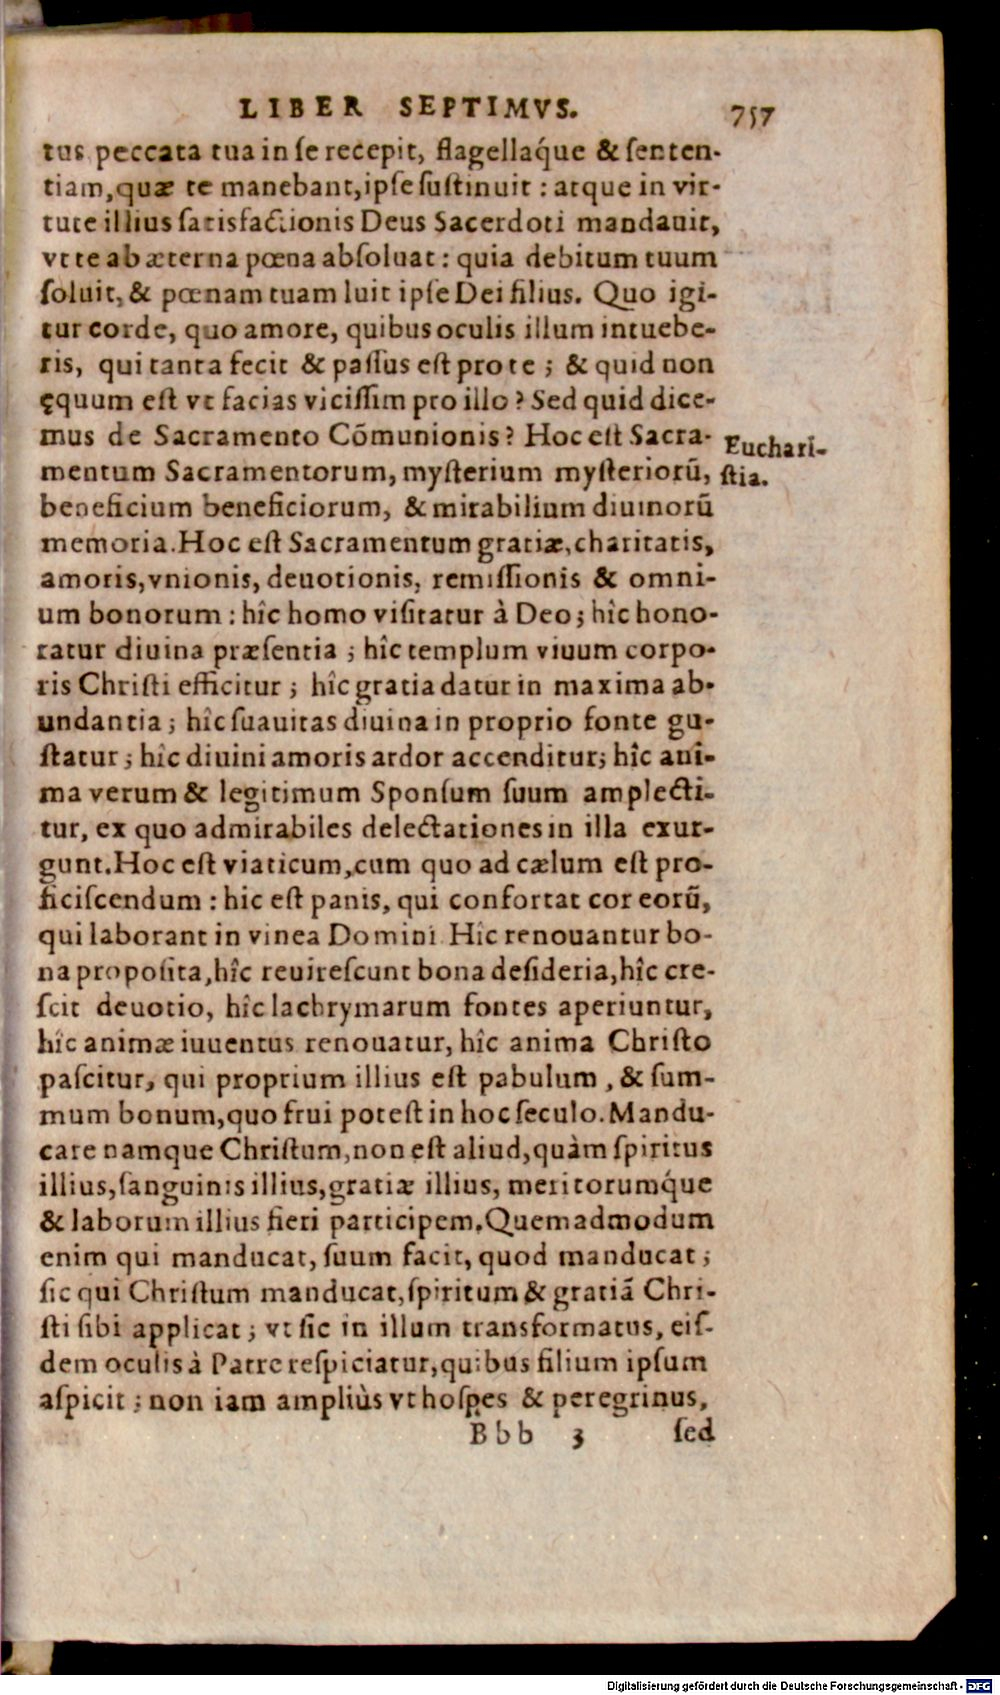 LIBER SEPTIMVS. 757
tus peccata tua in ſe recepit, flagellaq́ue & ſenten-
tiam, quæ te manebant, ipſe ſuſtinuit : atque in vir-
tute illius ſatisfactionis Deus Sacerdoti mandauit,
vt te ab æterna pœna abſoluat : quia debitum tuum
ſoluit, & pœnam tuam luit ipſe Dei filius. Quo igi-
tur corde, quo amore, quibus oculis illum intuebe-
ris, qui tanta fecit & paſſus eſt pro te ; & quid non
ęquum eſt vt facias viciſſim pro illo ? Sed quid dice-
mus de Sacramento Cõmunionis ? Hoc eſt Sacra-
Euchari-
mentum Sacramentorum, myſterium myſteriorũ,
ſtia.
beneficium beneficiorum, & mirabilium diuinorũ
memoria. Hoc eſt Sacramentum gratiæ, charitatis,
amoris, vnionis, deuotionis, remiſſionis & omni-
um bonorum : hîc homo viſitatur à Deo ; hîc hono-
ratur diuina præſentia ; hîc templum viuum corpo-
ris Chriſti efficitur ; hîc gratia datur in maxima ab-
undantia ; hîc ſuauitas diuina in proprio fonte gu-
ſtatur ; hîc diuini amoris ardor accenditur; hîc ani-
ma verum & legitimum Sponſum ſuum amplecti-
tur, ex quo admirabiles delectationes in illa exur-
gunt. Hoc eſt viaticum, cum quo ad cælum eſt pro-
ficiſcendum : hic eſt panis, qui confortat cor eorũ,
qui laborant in vinea Domini. Hîc renouantur bo-
na propoſita, hîc reuireſcunt bona deſideria, hîc cre-
ſcit deuotio, hîc lachrymarum fontes aperiuntur,
hîc animæ iuuentus renouatur, hîc anima Chriſto
paſcitur, qui proprium illius eſt pabulum , & ſum-
mum bonum, quo frui poteſt in hoc ſeculo. Mandu-
care namque Chriſtum, non eſt aliud, quàm ſpiritus
illius, ſanguinis illius, gratiæ illius, meritorumq́ue
& laborum illius fieri participem. Quemadmodum
enim qui manducat, ſuum facit, quod manducat ;
ſic qui Chriſtum manducat, ſpiritum & gratiã Chri-
ſti ſibi applicat ; vt ſic in illum transformatus, eiſ-
dem oculis à Patre reſpiciatur, quibus filium ipſum
aſpicit ; non iam ampliùs vt hoſpes & peregrinus,
Bbb 3 ſed
Digitalisierung gefördert durch die Deutsche Forschungsgemeinschaft - DFG